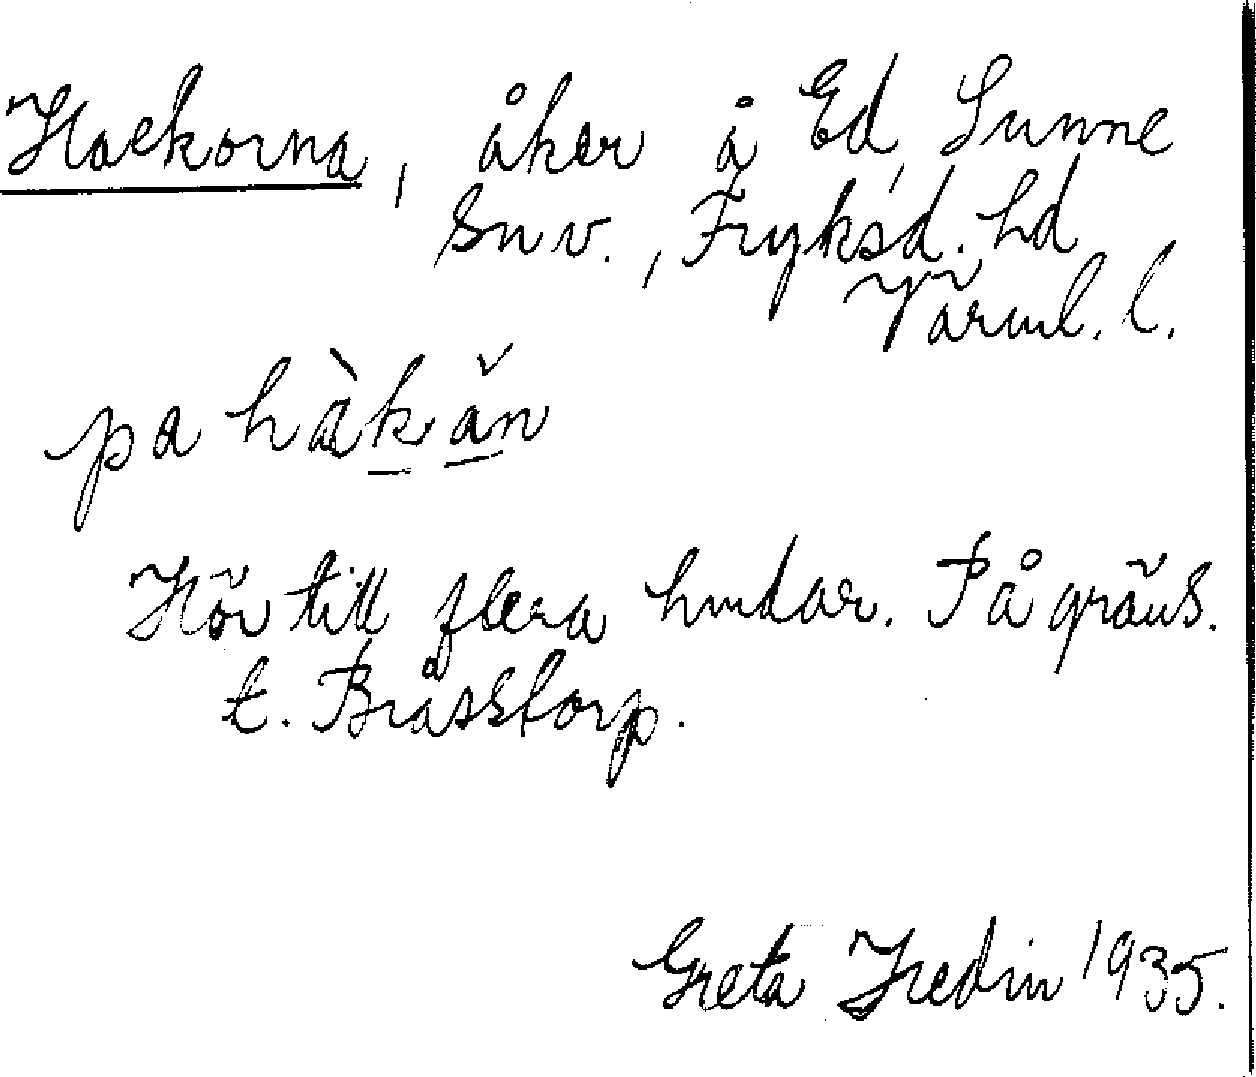 Hackorna, åker å Ed, Sunne
snv., Fryksd. hd
Värml. l.
pa hàkăn
Hör till flera lmdar. På gräns.
t. Bråsstorp.
Greta Hedin 1935.